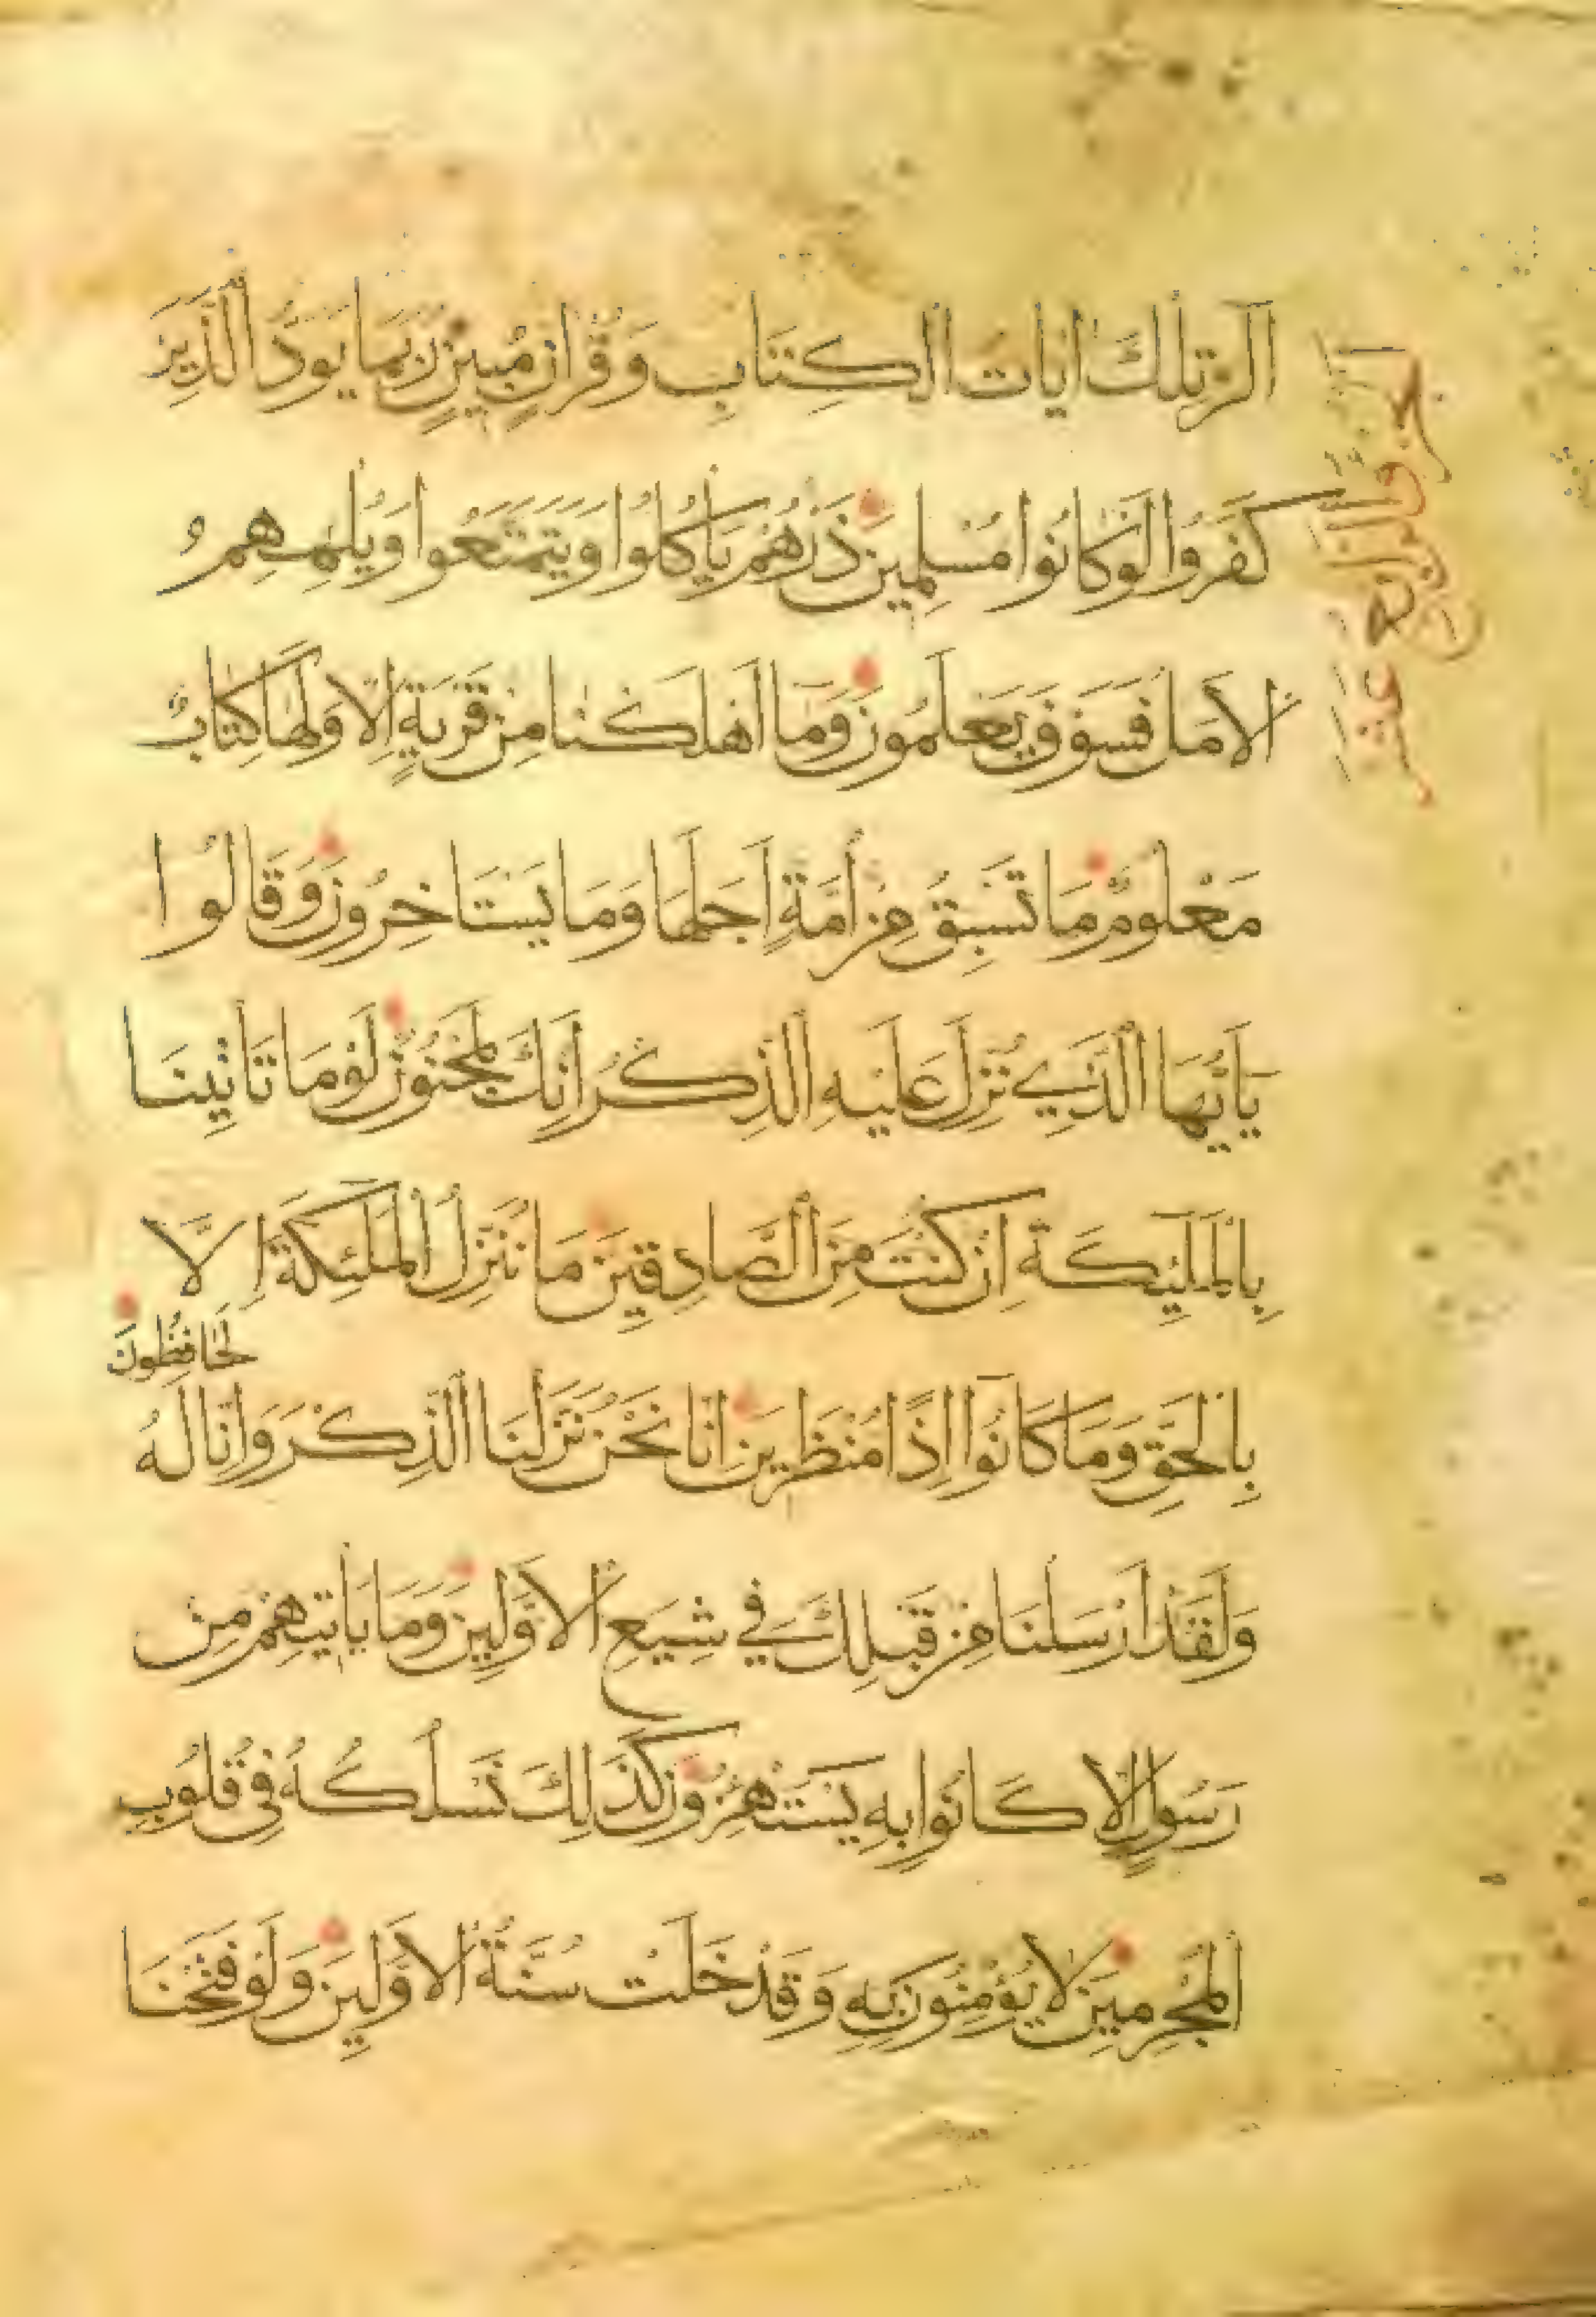 الر تلك ايات الكتاب وقران مبين ربما يود الذين
كفروا لو كانوا مسلمين ذرهم ياكلوا ويتمتعوا ويلههم و
الامل فسوف يعلمون وما اهلكنا من قرية الا ولها كتاب
معلوم ما تسبق من امة اجلها وما يستاخرون وقالوا
يايها الذي نزل عليه الذكر انك لمجنون لوما تاتينا
بالمليكة ان كنت من الصادقين ما ننزل الملئكة الا
بالحق وما كانوا اذا منظرين انا نحن نزلنا الذكر وانا له
لحافظون
ولقد ارسلنا من قبلك في شيع الاولين وما ياتيهم من
رسول الا كانوا به يستهزون كذلك نسلكه في قلوب
المجرمين لا يؤمنون به وقد خلت سنة الاولين ولو فتحنا